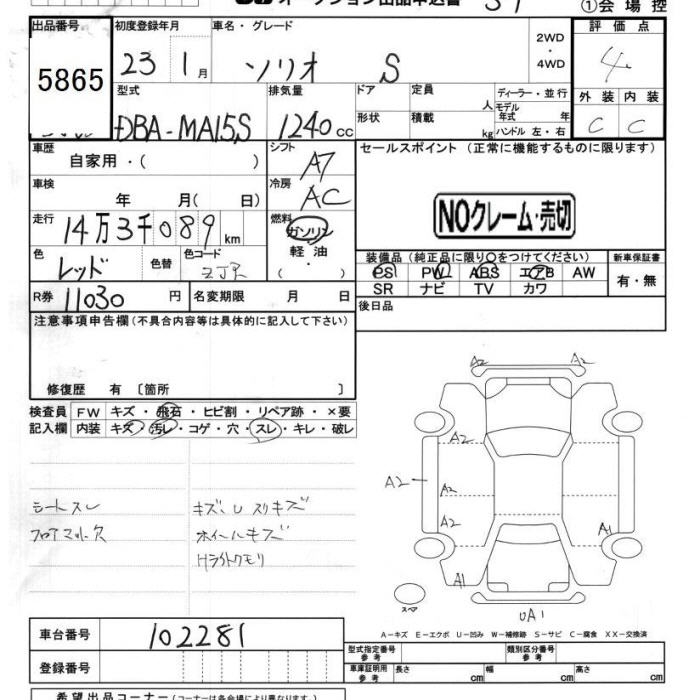 ①会場控
出品番号 初度登録年月 車名・グレード 評価点
5865 23 1月 ソリオ S 2WD ・ 4WD 4
型式 排気量 ドア 定員 人 ディーラー・並行 外装 内装
DBA-MA15S 1240cc 形状 積載 kg モデル年式 年 ハンドル 左・右 C C
車歴 自家用・( ) シフト A7 セールスポイント (正常に機能するものに限ります)
車検 年 月(日) 冷房 AC
NOクレーム・売切
走行 14万3千089km 燃料 ガソリン 軽油 ( ・ )
色 レッド 色替 色コード ZJ
装備品 (純正品に限り○をつけてください) 新車保証書
PS PW ABS エアB AW 有・無
SR ナビ TV カワ
R券 11030円 名変期限 月 日 後日品
注意事項申告欄 (不具合内容等は具体的に記入して下さい)
修復歴 有 〔箇所 〕
検査員 FW キズ・飛石・ヒビ割・リペア跡・×要
記入欄 内装 キズ・汚レ・コゲ・穴・スレ・キレ・破レ
シートスレ キズ、U スリキズ
フロアマット欠 ホイールキズ
Hライトクモリ
A2 A2
A2
A2 A2
A2 A1
A1
スペア UA1
A-キズ E-エクボ U-凹み W-補修跡 S-サビ C-腐食 XX-交換済
車台番号 102281
登録番号
型式指定番号 参考 類別区分番号 参考
車庫証明用 参考 長さ cm 幅 cm 高さ cm
希望出品コーナー (コーナーは各会場により異なります。)